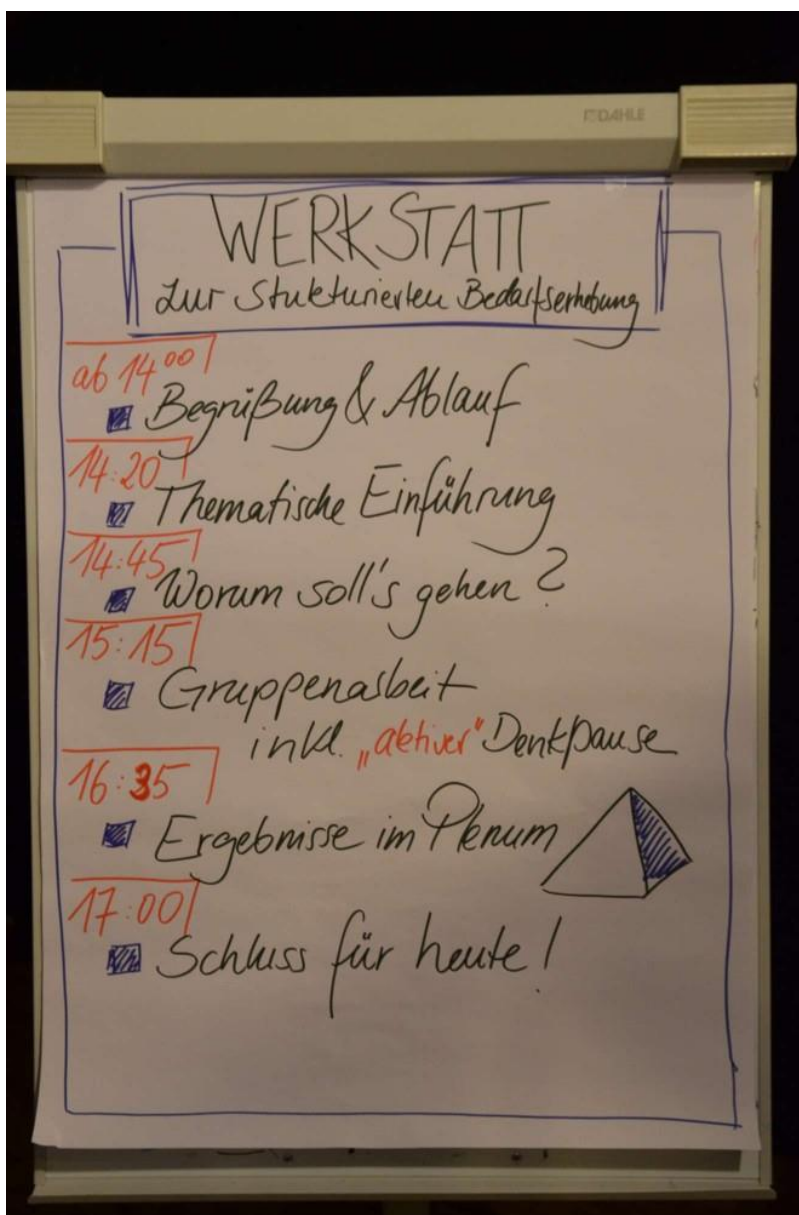 DAHLE
WERKSTATT
zur Stukturierten Bedarfserhebung
ab 14⁰⁰
Begrüßung & Ablauf
14:20
Thematische Einführung
14:45
Worum soll's gehen?
15:15
Gruppenarbeit
inkl. „aktiver" Denkpause
16:35
Ergebnisse im Plenum
17:00
Schluss für heute!